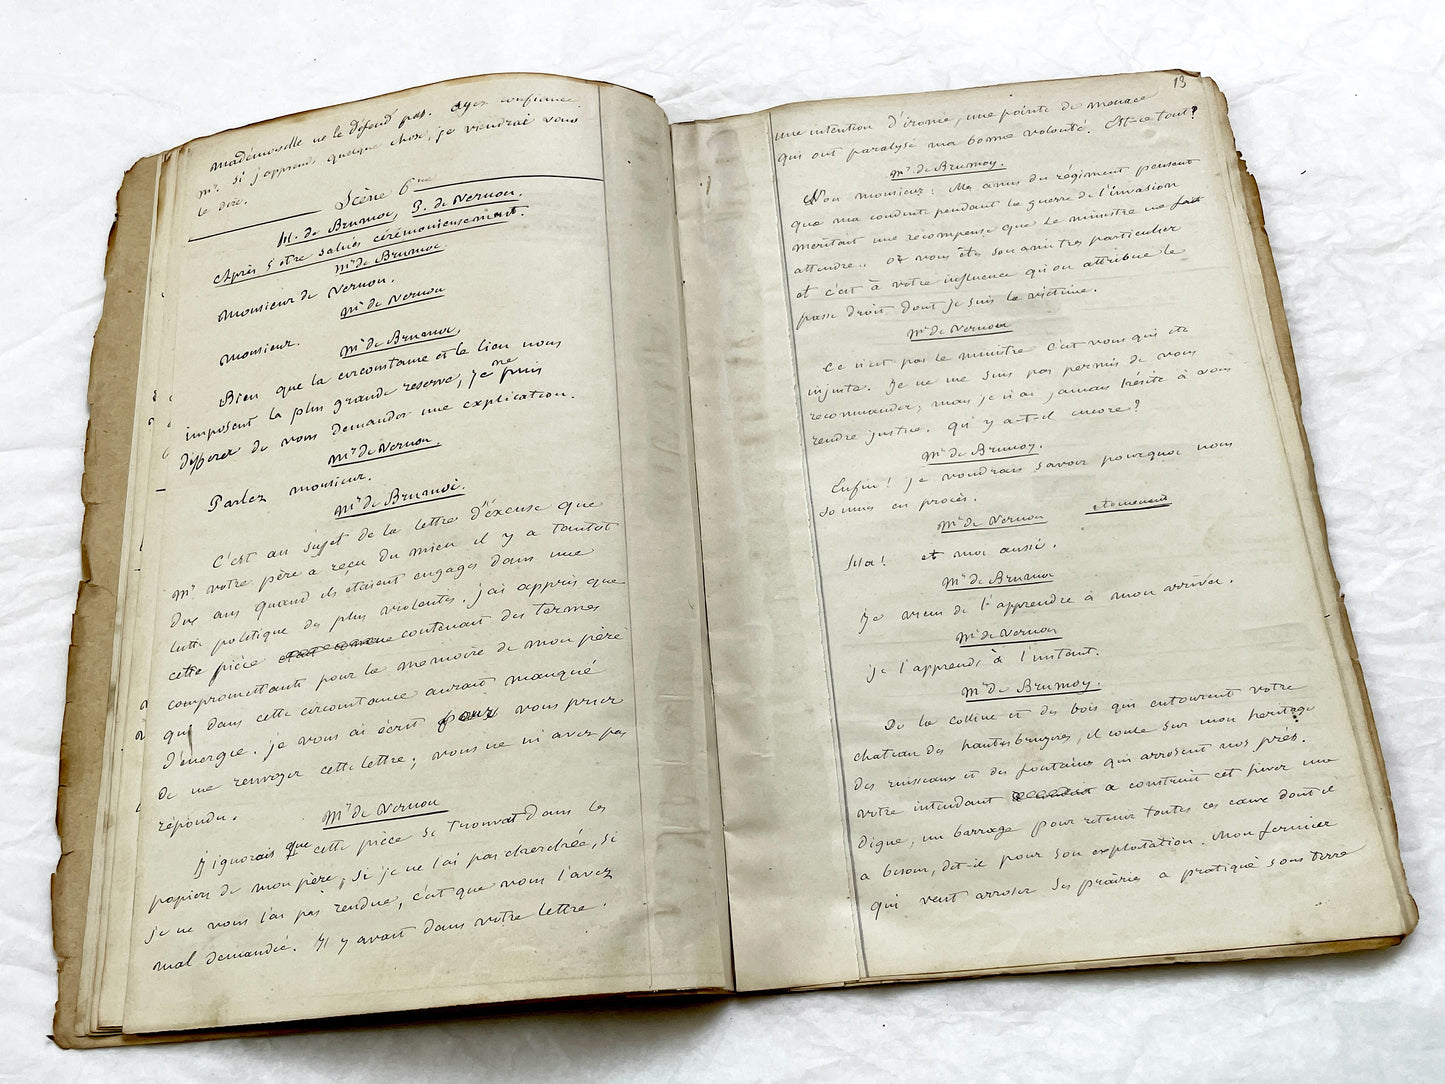 Mademoiselle ne le défend pas. Ayez confiance
Mr. Si j'apprends quelque chose, je viendrai vous
le dire.
Scène 6me
M. de Brumoi, P. de Vernon.
Après s'etre salués cérémonieusement.
Mr de Brumoi
Monsieur de Vernon.
Mr de Vernon
Monsieur.
Mr de Brumoi,
Bien que la circonstance et le lieu nous
imposent la plus grande reserve, je ne puis
differer de vous demander une explication.
Mr de Vernon.
Parlez monsieur.
Mr de Brumoi.
C'est au sujet de la lettre d'excuse que
Mr votre père a reçu du mien il y a tantot
dix ans quand ils etaient engagés dans une
lutte politique des plus violentes. j'ai appris que
cette pièce contenant des termes
compromettants pour la memoire de mon père
qui dans cette circonstance aurait manqué
d'energie. je vous ai écrit pour vous prier
de me renvoyer cette lettre; vous ne m'avez pas
répondu.
Mr de Vernon
J'ignorais que cette pièce se trouvat dans les
papiers de mon père; si je ne l'ai pas cherchée, si
je ne vous l'ai pas rendue, c'est que vous l'avez
mal demandée. Il y avait dans votre lettre.
13
une intention d'ironie, une pointe de menace
qui ont paralysé ma bonne volonté. Est-ce tout?
Mr de Brumoy.
Non monsieur: Mes amis du régiment pensent
que ma conduite pendant la guerre de l'invasion
meritait une recompense que le ministre me fait
attendre.. or vous êtes son ami tres particulier
et c'est à votre influence qu'on attribue le
passe droit dont je suis la victime.
Mr de Vernon
Ce n'est pas le ministre c'est vous qui ete
injuste. Je ne me suis pas permis de vous
recommander; mais je n'ai jamais hésité à vous
rendre justice. qu'y a-t-il encore?
Mr de Brumoy.
Enfin! je voudrais savoir pourquoi nous
sommes en procès.
Mr de Vernon etonnement
Ha! et moi aussi.
Mr de Brumoi
Je viens de l'apprendre à mon arrivée.
Mr de Vernon
je l'apprends à l'instant.
Mr de Brumoy.
De la colline et des bois qui entourent votre
chateau des hautes bruyeres, il coule sur mon heritage
des ruisseaux et des fontaines qui arrosent nos près.
Votre intendant a construit cet hiver une
digue, un barrage pour retenir toutes ces eaux dont il
a besoin, dit-il pour son exploitation. Mon fermier
qui veut arroser ses prairies a pratiqué sous terre